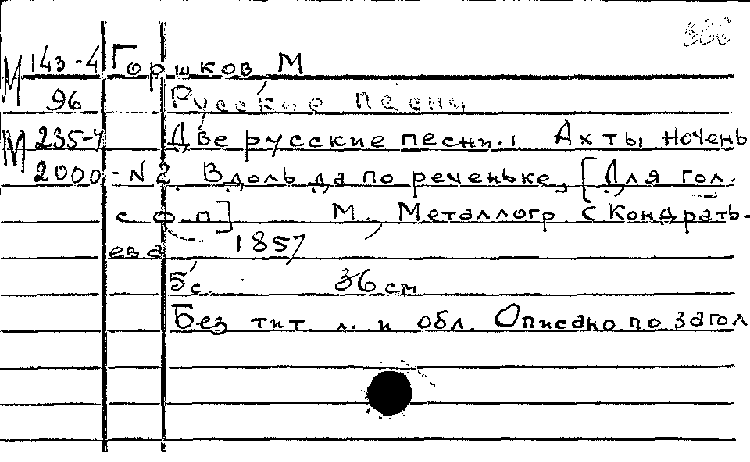 М 143-4 Горшков М
96 Русские песни
М 235-4 Две русские песни. 1 Ах ты ночень
2000 - N 2. Вдоль да по реченьке, [Для гол.
с ф-п] М., Металлогр. С Кондрать-
ева 1857
5 с. 36 см
Без тит. л. и обл. Описано по загол